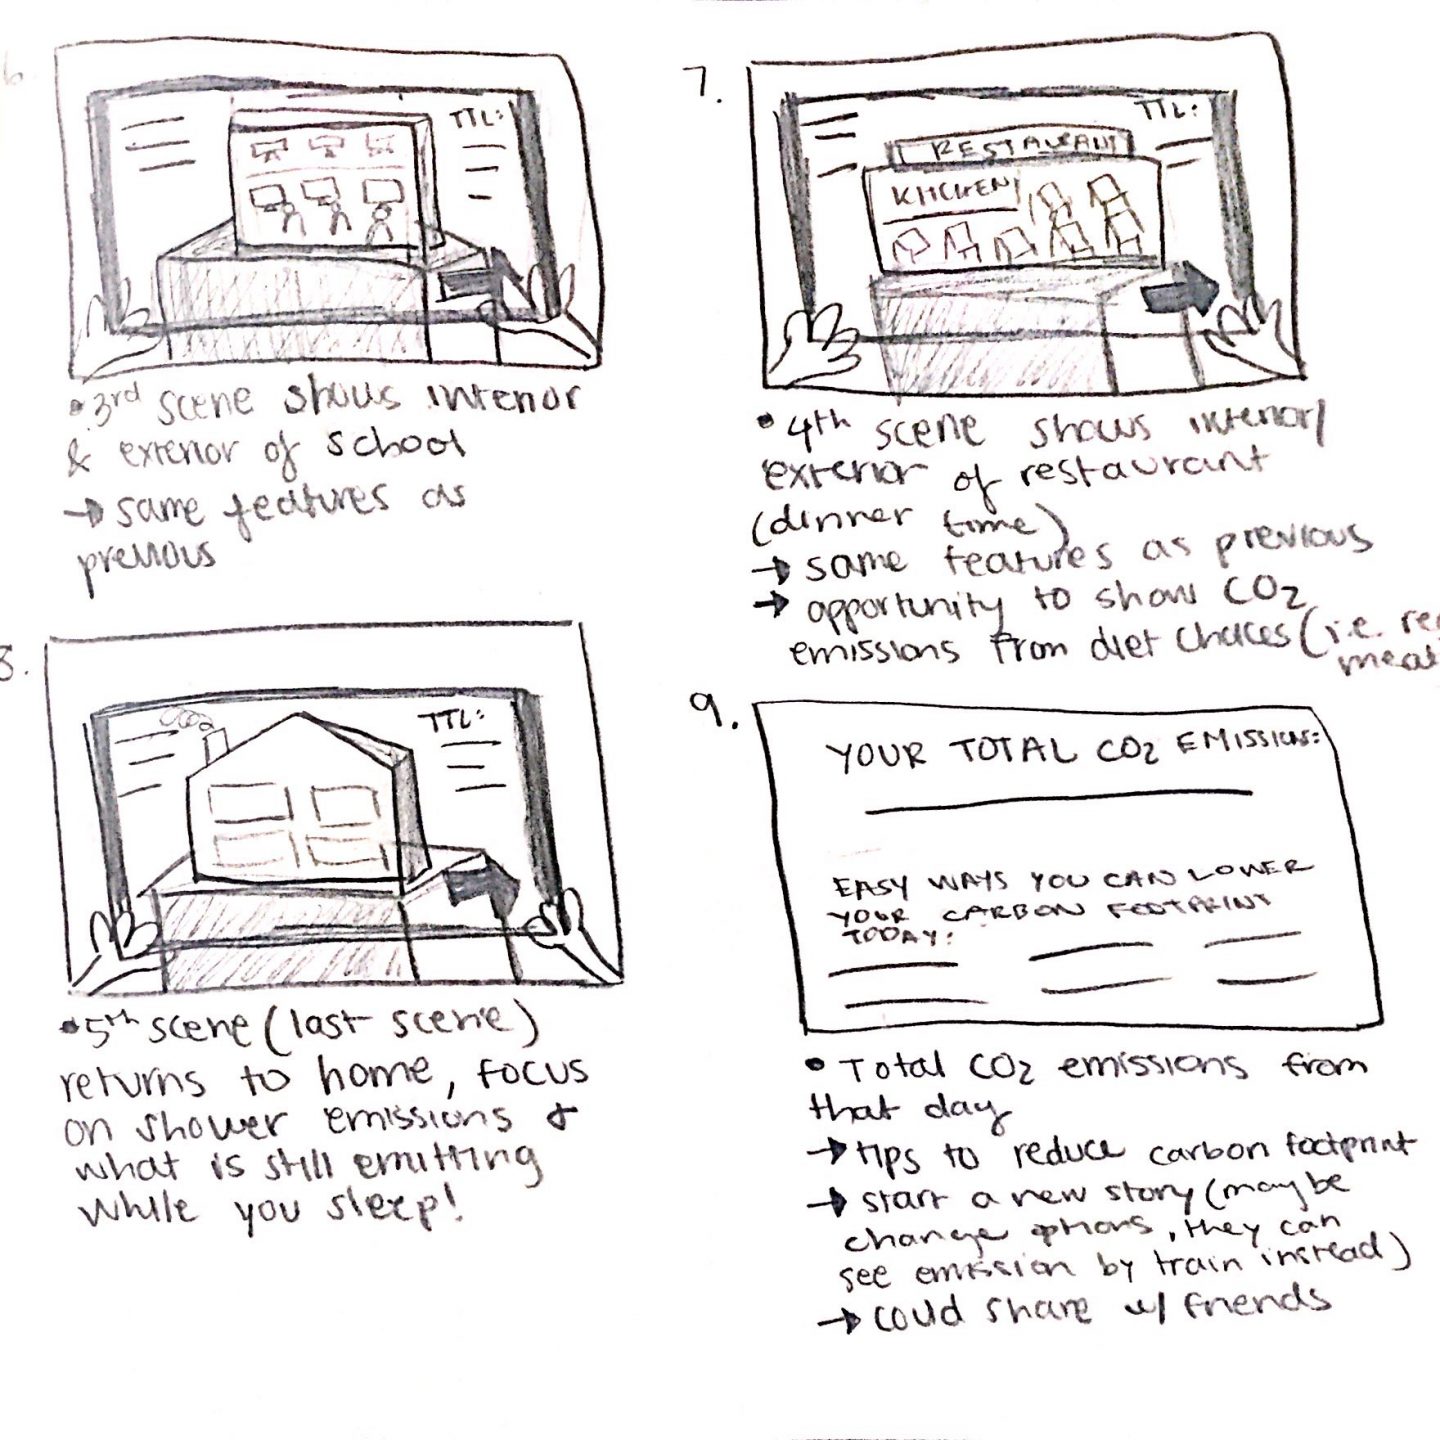 6.
TTL:
• 3rd scene shows interior
& exterior of school
→ same features as
previous
7.
TTL:
RESTAURANT
KITCHEN
• 4th scene shows interior/
exterior of restaurant
(dinner time)
→ same features as previous
→ opportunity to show CO2
emissions from diet choices (i.e.
meat
8.
TTL:
• 5th scene (last scene)
returns to home, focus
on shower emissions &
what is still emitting
while you sleep!
9.
YOUR TOTAL CO2 EMISSIONS:
EASY WAYS YOU CAN LOWER
YOUR CARBON FOOTPRINT
TODAY:
• Total CO2 emissions from
that day
→ tips to reduce carbon footprint
→ start a new story (maybe
change options, they can
see emission by train instead)
→ could share w/ friends